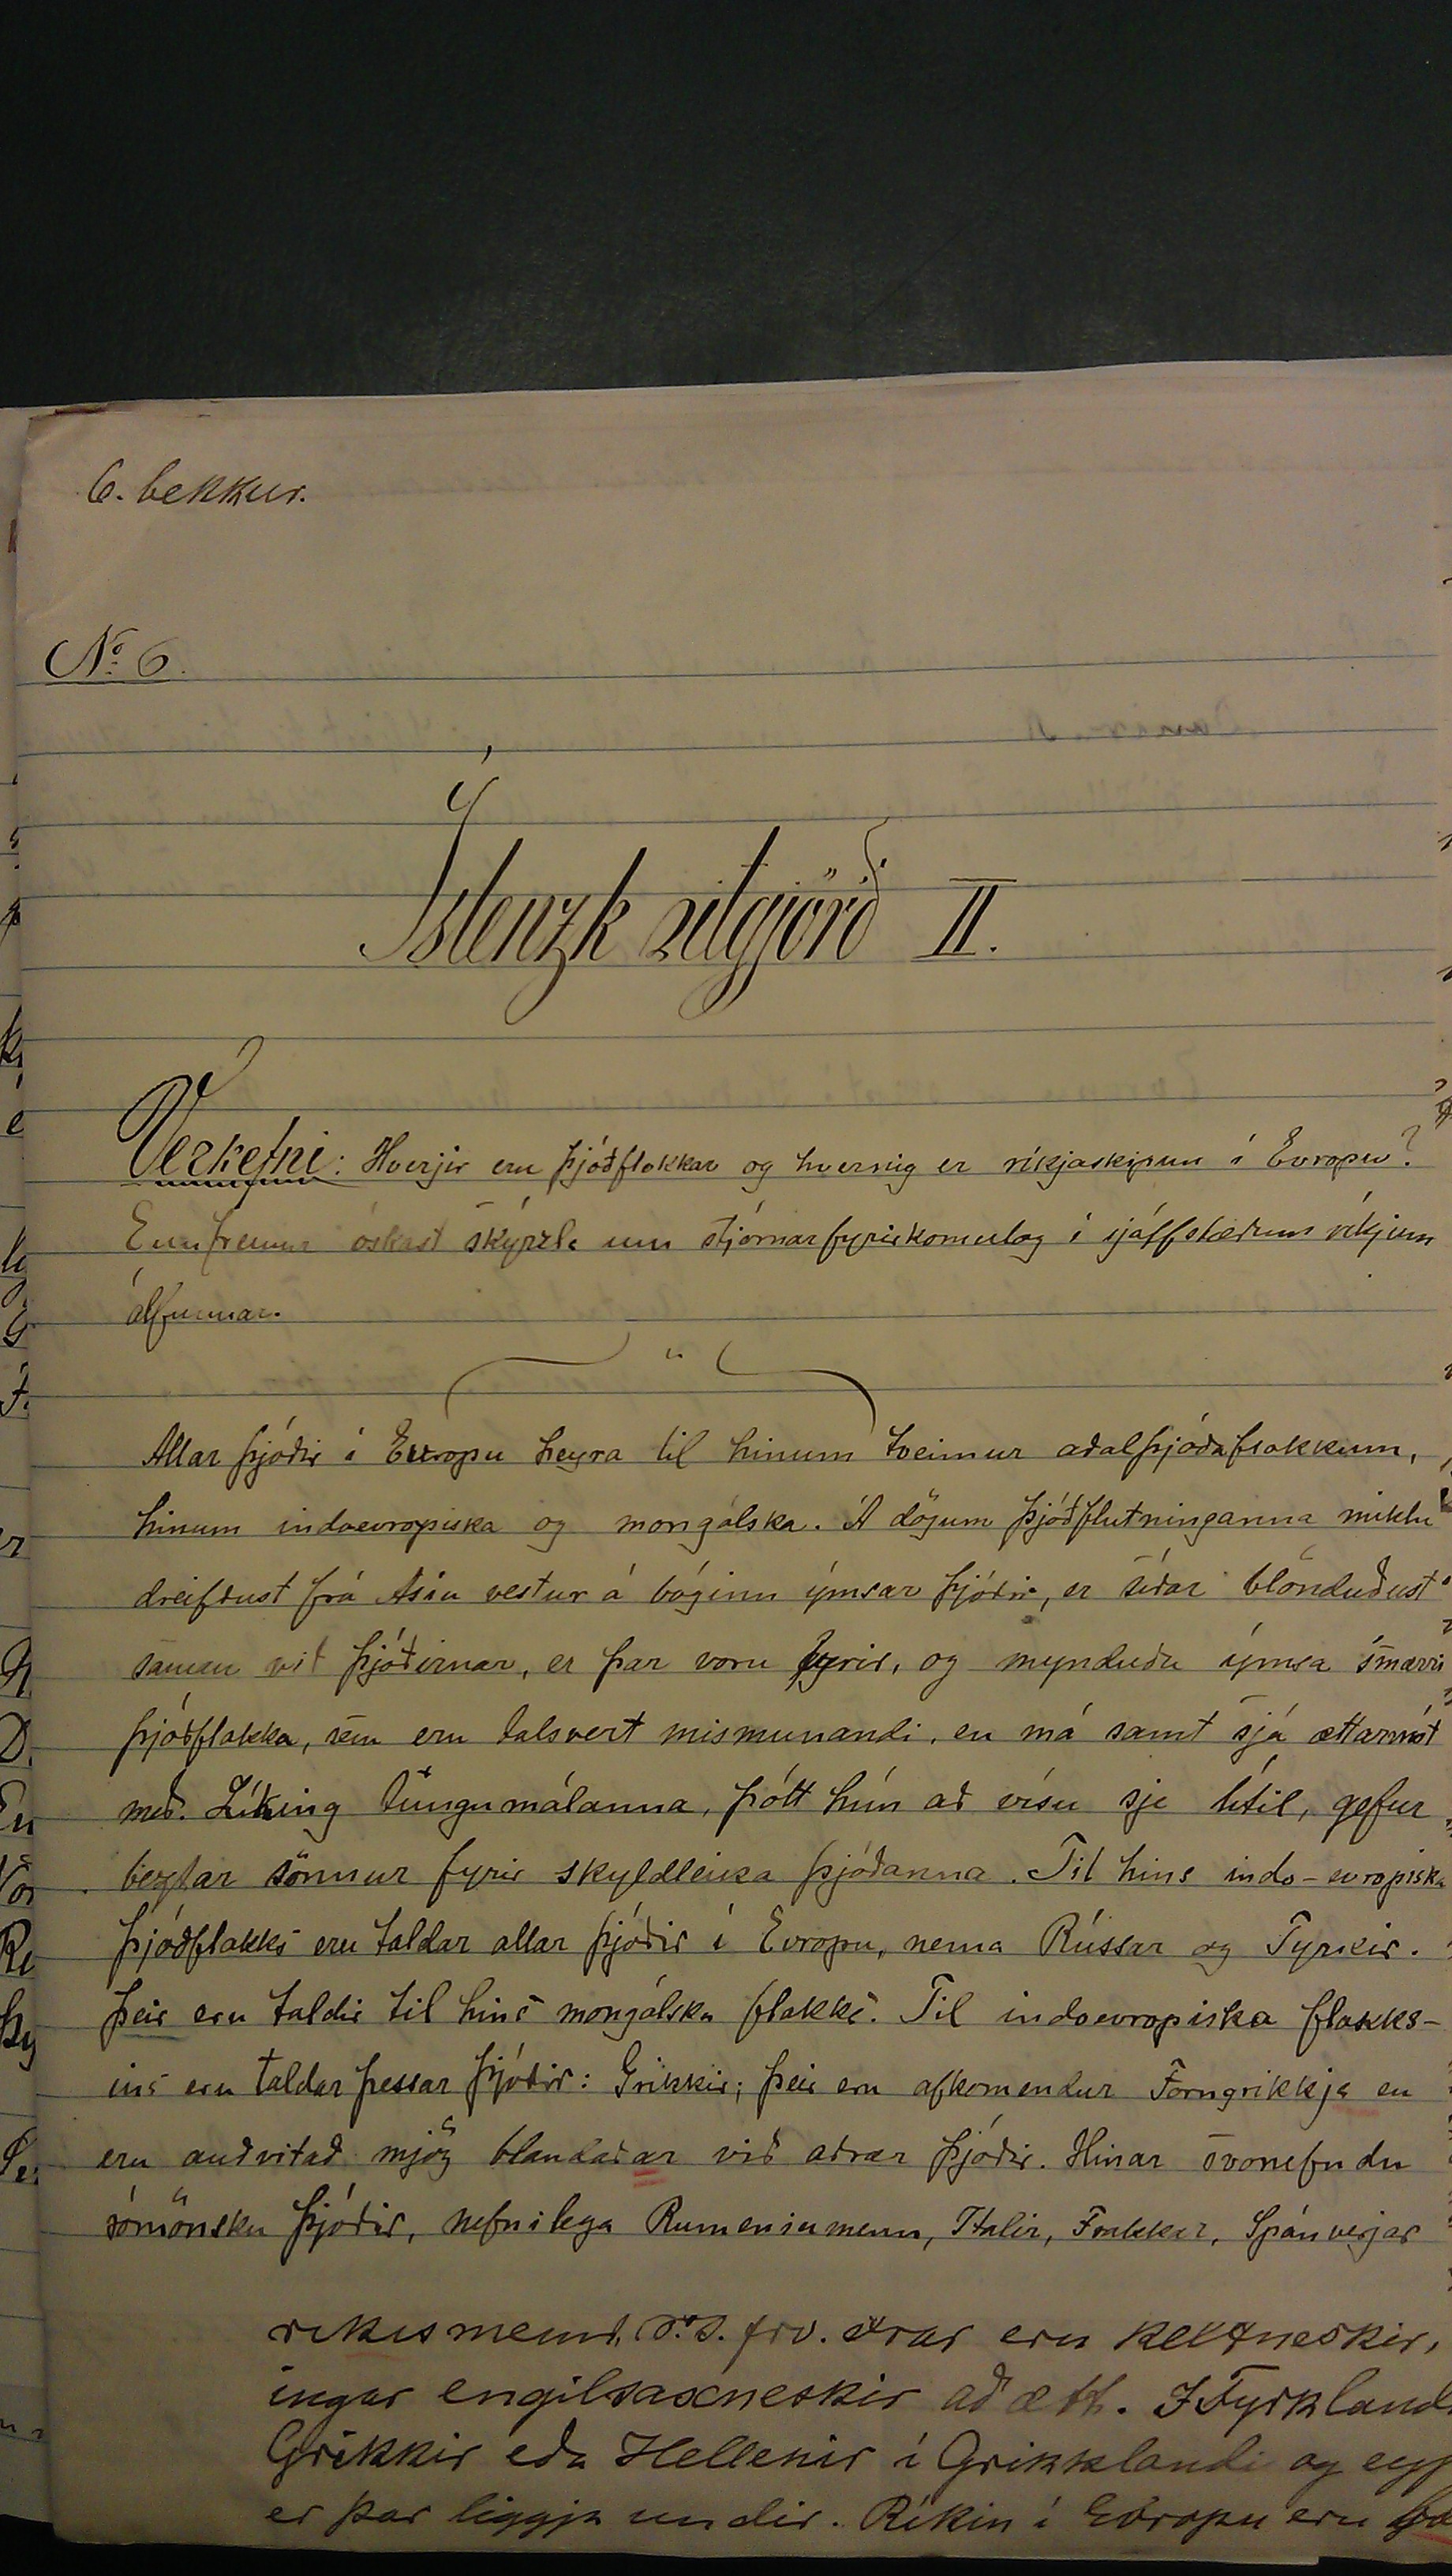 6. bekkur.
No 6.
Íslenzk ritgjörð II.
Verkefni: Hverjir eru þjóðflokkar og hvernig er ríkjaskipun í Evropu?
Ennfremur óskast skýrzla um stjórnarfyrirkomulag í sjálfstæðum ríkjum
álfunnar.
Allar þjóðir í Evropu heyra til hinum tveimur aðalþjóðaflokkum,
hinum indoevropiska og mongólska. Á dögum þjóðflutninganna miklu
dreifðust frá Asíu vestur á bóginn ýmsar þjóðir, er síðar blönduðust
saman við þjóðirnar, er þar voru fyrir, og mynduðu ýmsa smærri
þjóðflokka, sem eru talsvert mismunandi, en má samt sjá ættarmót
með. Líking tungumálanna, þótt hún að vísu sje lítil, gefur
beztar sönnur fyrir skyldleika þjóðanna. Til hins indo-evropiska
þjóðflokks eru taldar allar þjóðir í Evropu, nema Rússar og Tyrkir.
Þeir eru taldir til hins mongólska flokks. Til indoevropiska flokks-
ins eru taldar þessar þjóðir: Grikkir; þeir eru afkomendur Forngrikkja en
eru auðvitað mjög blandaðar við aðrar þjóðir. Hinar svonefndu
rómönsku þjóðir, nefnilega Rumeniumenn, Italir, Frakkar, Spánverjar
rikismenn, o.s.frv. Írar eru keltneskir,
ingar engilsaxneskir að ætt. Í Tyrkland
Grikkir eða Hellenir í Grikklandi og eyj
er þar liggja undir. Ríkin í Evropu eru